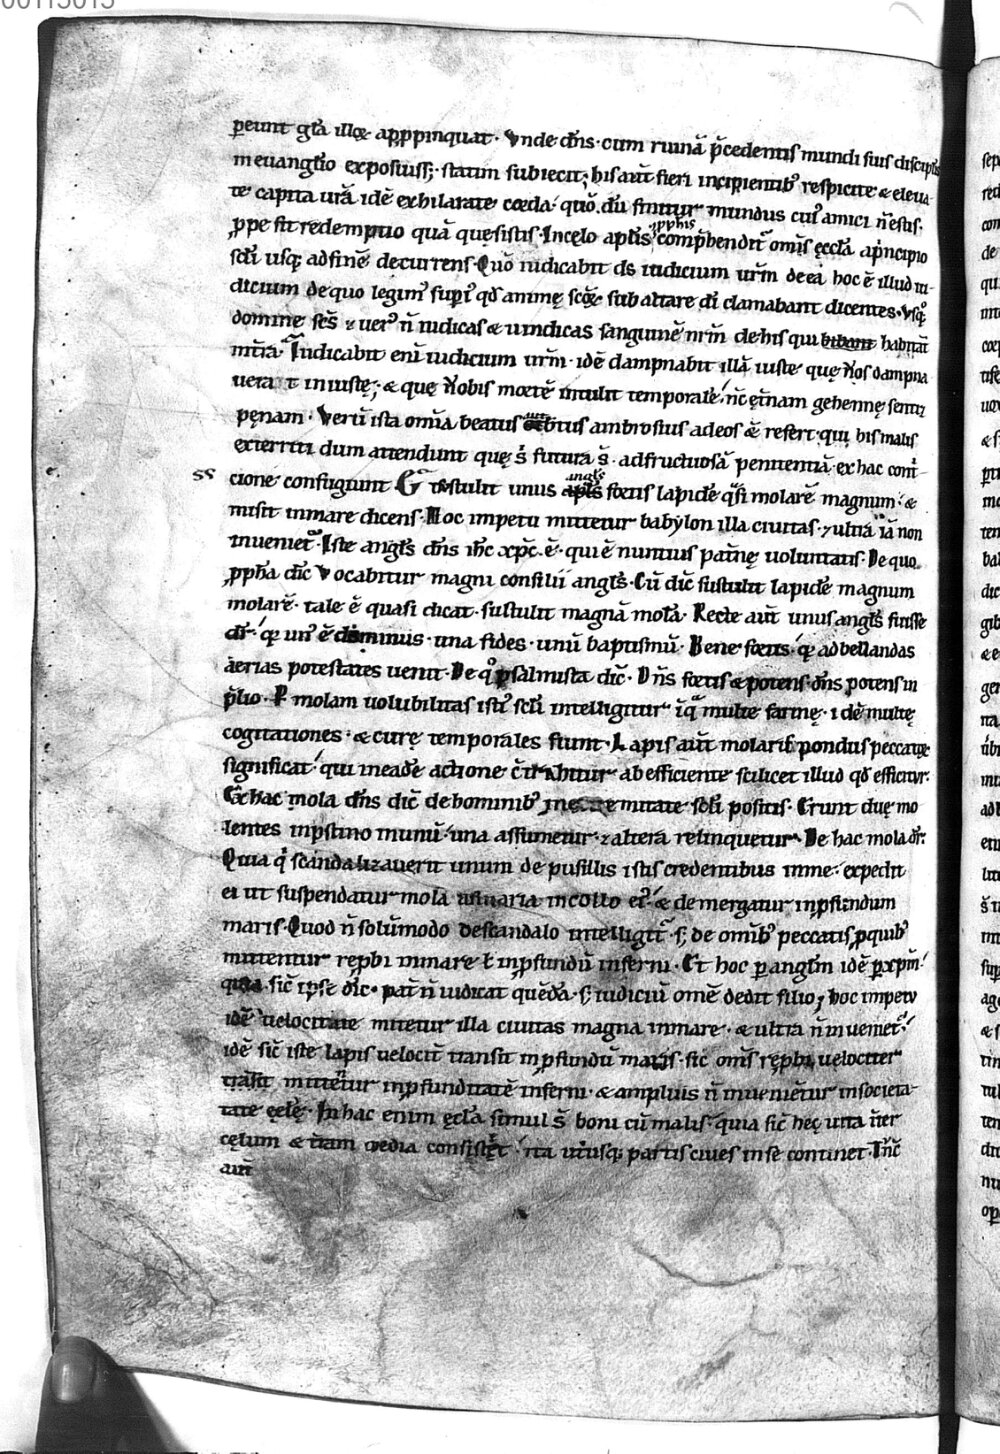 00113015
peunt gl̄a illoꝝ appropinquat · Vnde dn̄s · cum ruinā p̄cedentis mundi suis discipl̄is
in euanglio exposuiss; · statim subiecit; his aut̄ fieri incipientib; respicite & leua
te capita ur̄a idē exhilarate corda · quō dū finitur mundus cui amici n̄ estis ·
ꝓpe fit redemptio quā quesistis · In celo apl̄is ꝓph̄is comp̄hendit om̄is ęccl̄a a p̄ncipio
scl̄i usq; ad finē decurrens · Qm̄ iudicabit ds̄ iudicium ur̄m de ea hoc ē illud iu-
dicium de quo legim; sup̄i qd̄ animę scōꝝ sub altare dī clamabant dicentes · Vsq;
dominę scs̄ & uer; n̄ iudicas & uindicas sanguinē nr̄m de his qui habitāt
int̄ra · Iudicabit eni iudicium ur̄m · idē dampnabit illā iuste quę uos dampna
uerat iniuste; & quę uobis mortē intulit temporalē · n̄c ęt̄nam gehennę sentit
pęnam · Verū ista om̄ia beatus ambrosius adeos ē refert · qui his malis
exterriti dum attendunt quę s̄ futura s̄ · ad fructuosā penitentiā ex hac cont̄-
cione confugiunt Et sustulit unus angl̄s fortis lapidē q̄si molarē magnum · &
misit in mare dicens · Hoc impetu mittetur babylon illa ciuitas · & ultra iā non
inueniet · Iste angl̄s dn̄s ih̄c xp̄c · ē · qui ē nuntius patnę uoluntatis · De quo
ꝓph̄a dic̄ Vocabitur magni consilii angl̄s · Cū dic̄ sustulit lapidē magnum
molarē · tale ē quasi dicat · sustulit magnā molā · Recte aut̄ unus angl̄s fuisse
dr̄ · q̄ un; ē dominus · una fides · unū baptismū · Bene fortis · q̄ ad bellandas
aerias potestates uenit · De q̄ psalmista dic̄ · Dn̄s fortis & potens · dn̄s potens in
p̄lio · Per molam uolubilitas isti; scl̄i intelligitur in q̄ multe farinę · idē multę
cogitationes · & curę temporales fiunt · Lapis aut̄ molaris pondus peccatoꝝ
significat · qui mea de actione ab efficiente scilicet illud qd̄ efficitur ·
Ex hac mola dn̄s dic̄ de hominib; positis · Erunt duę mo
lentes in pistrino munū · una assumetur · & altera relinquetur · De hac mola dr̄ ·
Quia q̄ scandalizauerit unum de pusillis istis credentibus in me · expedit
ei ut suspendatur mola asinaria in collo ei; & demergatur in ꝓfundum
maris · Quod n̄ solūmodo de scandalo intelligit̄ · s; de omīb; peccatis ꝓ quib;
mittentur repbi in mare t̄ in ꝓfundū inferni · Et hoc p angl̄m idē p xp̄m
quia · sic̄ ipse dic̄ · pat̄ n̄ iudicat quēdā · s; iudiciū omē dedit filio; hoc impetu
idē uelocitate mittetur illa ciuitas magna in mare · & ultra n̄ inueniet̄ ·
idē sic̄ iste lapis uelocit̄ transit in ꝓfundū maris · sic om̄s repbi uelociter
trāsit mittētur in ꝓfunditatē inferni · & ampluis n̄ inueniētur in societa-
tate ęclę · In hac enim ęcl̄a simul s̄ boni cū malis · quia sic̄ hęc uita int̄er
cęlum & tr̄am media consistit · ita utr̄usq; partis ciues in se continet · Inc̄
aut̄